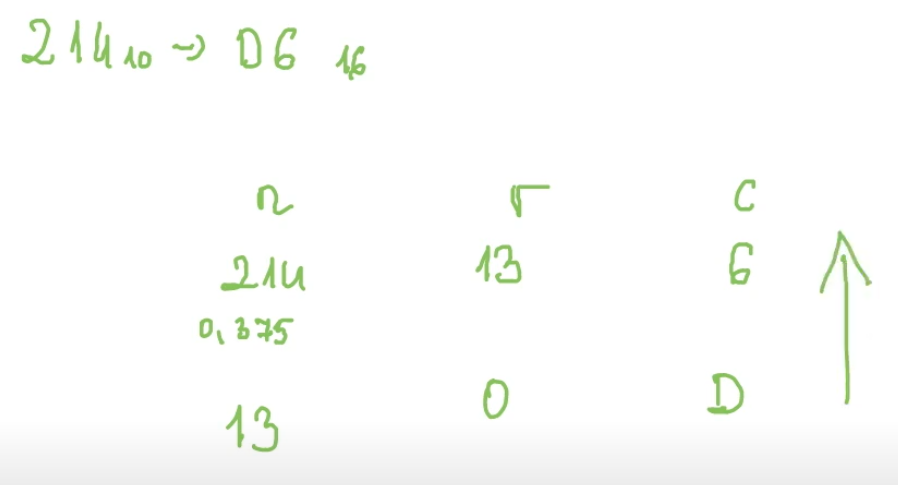 214₁₀ → D6 ₁₆
n r c
214 13 6
0,375
13 0 D